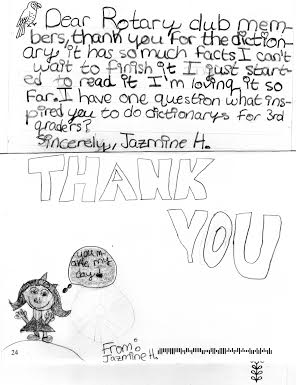 Dear Rotary club mem-
bers, thank you for the diction-
ary it has so much facts I can't
wait to finish it I just start-
ed to read it I'm loving it so
far. I have one question what ins-
pired you to do dictionarys for 3rd
graders?
Sincerely, Jazmine H.
THANK
YOU
you m-
ade my
day!
From:
Jazmine H.
24